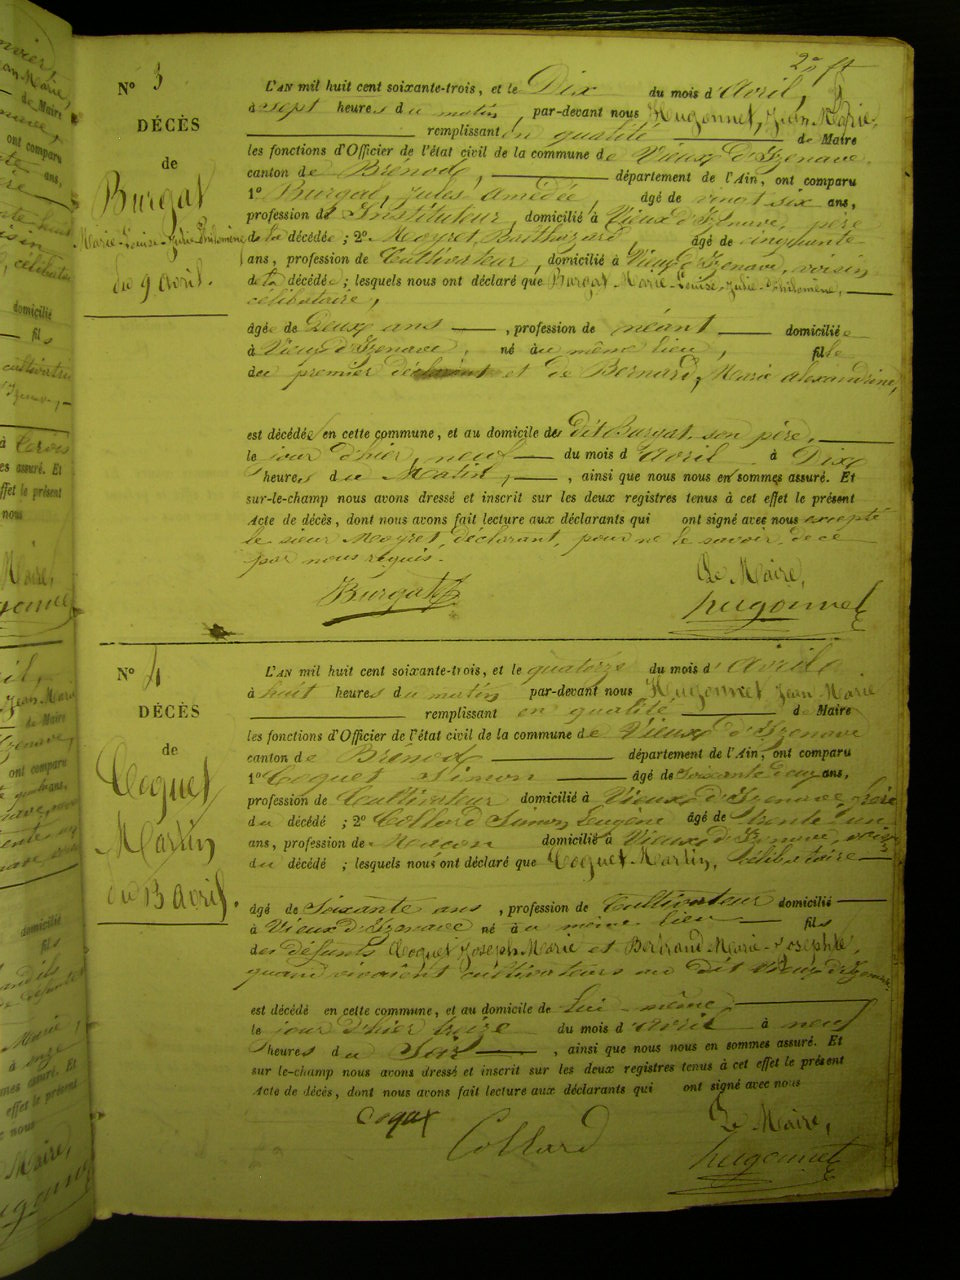 2e ft
N° 3
DÉCÈS
de
Burgat
Marie-Louise-Julie-Philomène
du 9 avril.
L'AN mil huit cent soixante-trois, et le Dix du mois d'Avril,
à sept heures du matin, par-devant nous Hugonnet, Jean Marie,
remplissant en qualité de Maire
les fonctions d'Officier de l'état civil de la commune de Vieux d'Izenave,
canton de Brénod, département de l'Ain, ont comparu
1° Burgat, Jules Amédée, âgé de vingt six ans,
profession de Instituteur, domicilié à Vieux d'Izenave, père
de la décédée; 2° Moyret, Balthazard, âgé de cinquante
ans, profession de Cultivateur, domicilié à Vieux d'Izenave, voisin
de la décédée; lesquels nous ont déclaré que Burgat Marie-Louise-Julie-Philomène,
célibataire,
âgée de Deux ans, profession de néant domiciliée
à Vieux d'Izenave, né au même lieu, fille
du premier déclarant et de Bernard, Marie Alexandrine,
est décédée en cette commune, et au domicile du dit Burgat, son père,
le jour d'hier, neuf du mois d'Avril à Dix
heures du Matin, ainsi que nous nous en sommes assuré. Et
sur-le-champ nous avons dressé et inscrit sur les deux registres tenus à cet effet le présent
Acte de décès, dont nous avons fait lecture aux déclarants qui ont signé avec nous excepté
le sieur Moyret, déclarant, pour ne le savoir, de ce
par nous requis.
Le Maire,
Burgat
hugonnet
N° 4
DÉCÈS
de
Coquet
Martin
du 13 avril.
L'AN mil huit cent soixante-trois, et le quatorze du mois d'avril
à huit heures du matin par-devant nous Hugonnet Jean Marie
remplissant en qualité de Maire
les fonctions d'Officier de l'état civil de la commune de Vieux d'Izenave
canton de Brénod département de l'Ain, ont comparu
1° Coquet Simon âgé de soixante deux ans,
profession de Cultivateur domicilié à Vieux d'Izenave, frère
du décédé; 2° Collard Simon Eugène âgé de trente un
ans, profession de Maçon domicilié à Vieux d'Izenave, voisin
du décédé; lesquels nous ont déclaré que Coquet Martin, célibataire
âgé de Soixante ans, profession de Cultivateur domicilié
à Vieux d'Izenave né au même lieu fils
des défunts Coquet Joseph Marie et Bertrand Marie-Josephte,
quand vivaient cultivateurs au dit Vieux d'Izenave
est décédé en cette commune, et au domicile de lui même,
le jour d'hier treize du mois d'avril à neuf
heures du Soir, ainsi que nous nous en sommes assuré. Et
sur-le-champ nous avons dressé et inscrit sur les deux registres tenus à cet effet le présent
Acte de décès, dont nous avons fait lecture aux déclarants qui ont signé avec nous
Le Maire,
Collard
hugonnet